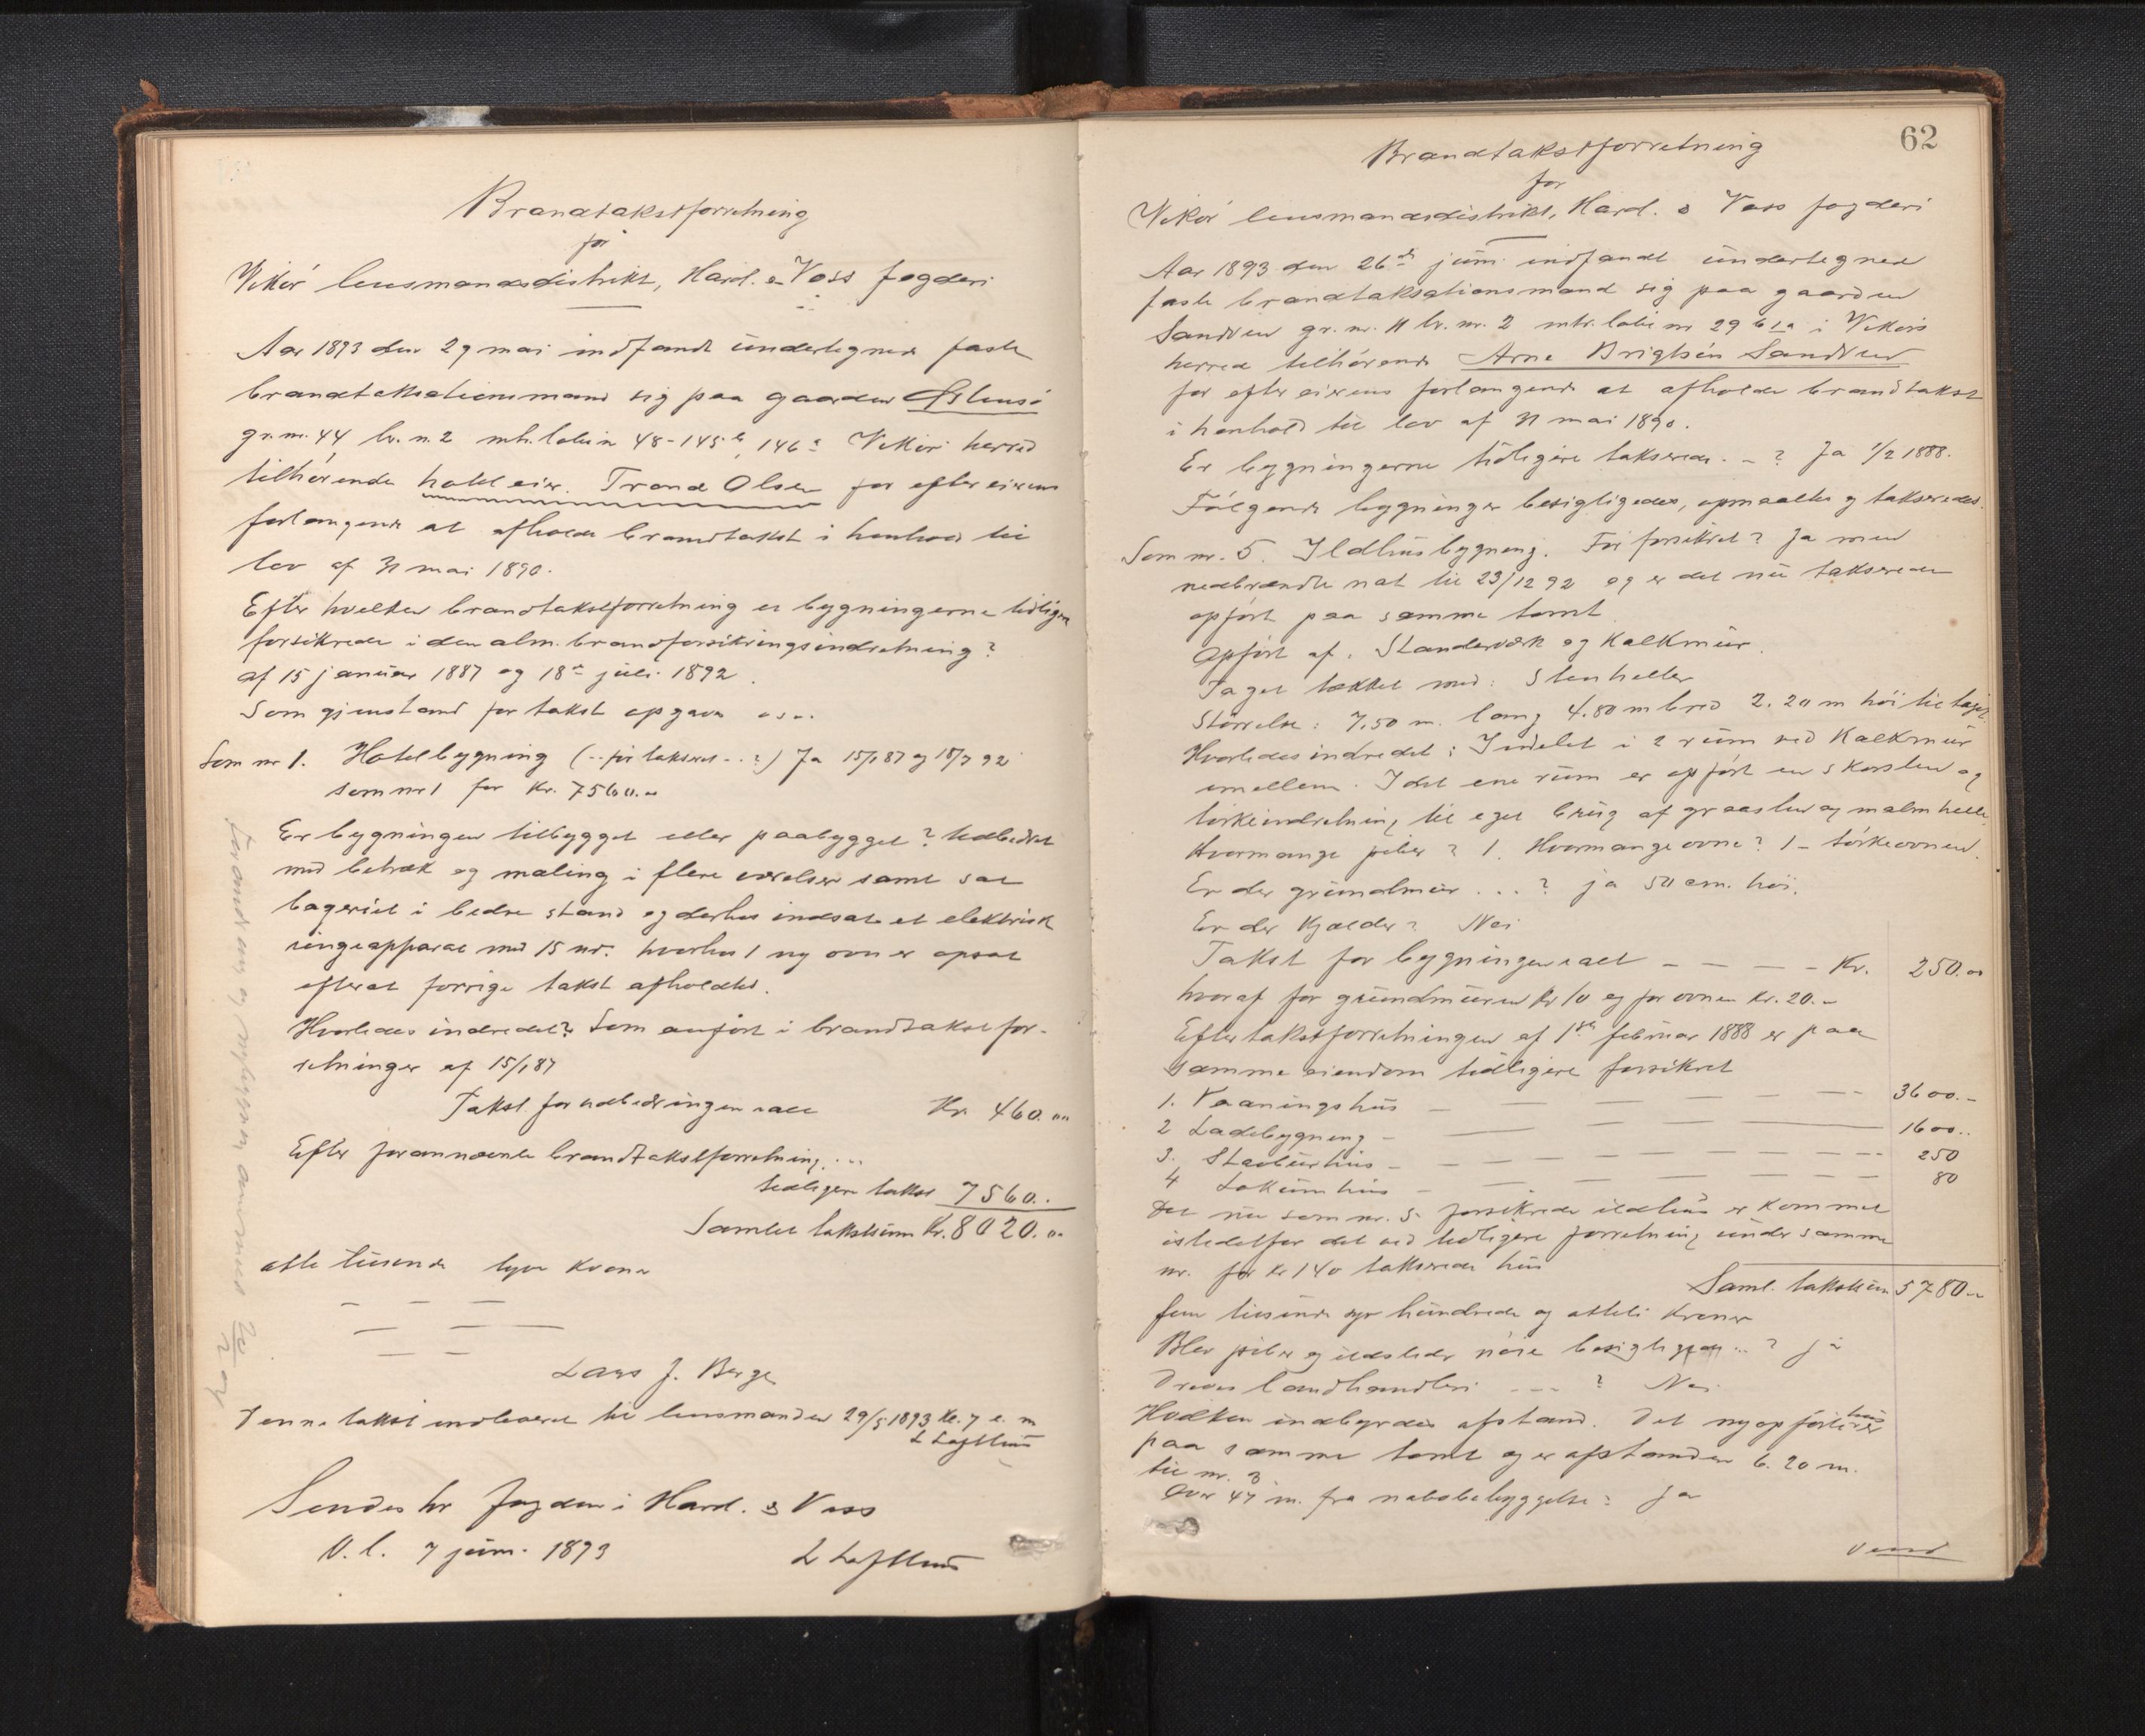 Brandtakstforretning
for
Vikör lensmandsdistrikt, Hard. & Voss fogderi
Aar 1893 den 29 mai indfandt undertegnede faste
brandtaksationsmand sig paa gaarden Östensö
gr. nr. 44, br. n. 2 mtr. labe n 48-145 b, 146 a Vikörs herred
tilhörende hotel eier Trond Olsen for efter eierens
forlangende at afholde brandtakst i henhold til
lov af 31 mai 1890.
Efter hvilken brandtakstforretning er bygningerne tidligere
forsikrede i den alm. brandforsikringsindretning?
af 15 januar 1887 og 18de juli 1892.
Som gjenstand for takst opgaves
Som nr 1. Hotelbygning (.. för takseret ..?) Ja 15/1 87 og 18/7 92
som nr 1 for Kr. 7560.00
Er bygningen tilbygget eller paabygget? Udbedret
med betræk og maling i flere værelser samt sat
bageriet i bedre stand og derhos indsat et elektrisk
ringeapparat med 15 nr. hvorhos 1 ny ovn er opsat
efterat forrige takst afholdtes.
Hvorledes indredet? Som anfört i brandtakstfor-
retninger af 15/1 87
Takst for udbedringen ialt Kr 460.00
Efter forannævnte brandtakstforretning ...
tidligere takst 7560..
Samlet takstsum Kr. 8020.00
otte tusende tyve kroner
Lars J. Berge
Denne takst indleveret til lensmanden 29/5 1893 Kl. 7 e. m
L Lofthus
Sendes hr Fogden i Hard. & Voss
V. l. 7 juni 1893 L Lofthus
62
Brandtakstforretning
for
Vikör lensmandsdistrikt, Hard. & Voss fogderi
Aar 1893 den 26de juni indfandt undertegnede
faste brandtaksationsmand sig paa gaarden
Sandven gr. nr. 11 br. nr. 2 mtr. labe nr 29 b 1 a i Vikörs
herred tilhörende Arne Brigtsen Sandven
for efter eierens forlangende at afholde brandtakst
i henhold til lov af 31 mai 1890.
Er bygningerne tidligere takserede - ? Ja 1/2 1888.
Fölgende bygninger besigtigedes, opmaaltes og takseredes.
Som nr. 5. Ildhusbygning. För forsikret? Ja men
nedbrændte nat til 23/12 92 og er det nu takserede
opfört paa samme tomt
Opfört af: Standerværk og Kalkmur.
Taget tækket med: Stenheller
Störrelse: 7,50 m. lang 4.80 m bred 2.20 m höi til taget.
Hvorledes indredet: Inddelt i 2 rum ved Kalkmur
imellem. I det ene rum er opfört en skorsten og
törkeindretning til eget brug af graasten og malmhelle.
Hvormange piber? 1. Hvormange ovne? 1 - törkeovnen.
Er der grundmur ...? ja 50 cm. höi.
Er der Kjælder? Nei
Takst for bygningen ialt - - - - Kr. 250.00
hvoraf for grundmuren Kr 10 og for ovnen Kr. 20.-
Efter takstforretningen af 1ste februar 1888 er paa
samme eiendom tidligere forsikret
1. Vaaningshus - - - - 3600.-
2 Ladebygning - - - - 1600..
3. Stabürhus - - - - 250
4 Lokumhus - - - - 80
Det nu som nr. 5 forsikrede ildhus er kommet
istedetfor det ved tidligere forretning under samme
nr. for Kr 140 takserede hus
Saml. takstsum 5780.-
fem tusinde syv hundrede og otteti Kroner
Blev piber og ildsteder nöie besigtigede ..? ja
Drives landhandleri --- ? Nei
Hvilken indbyrdes afstand. Det nyopförte hus er
paa samme tomt og er afstanden 6.20 m.
til nr. 3
Over 47 m. fra nabobebyggelse: Ja
Vend